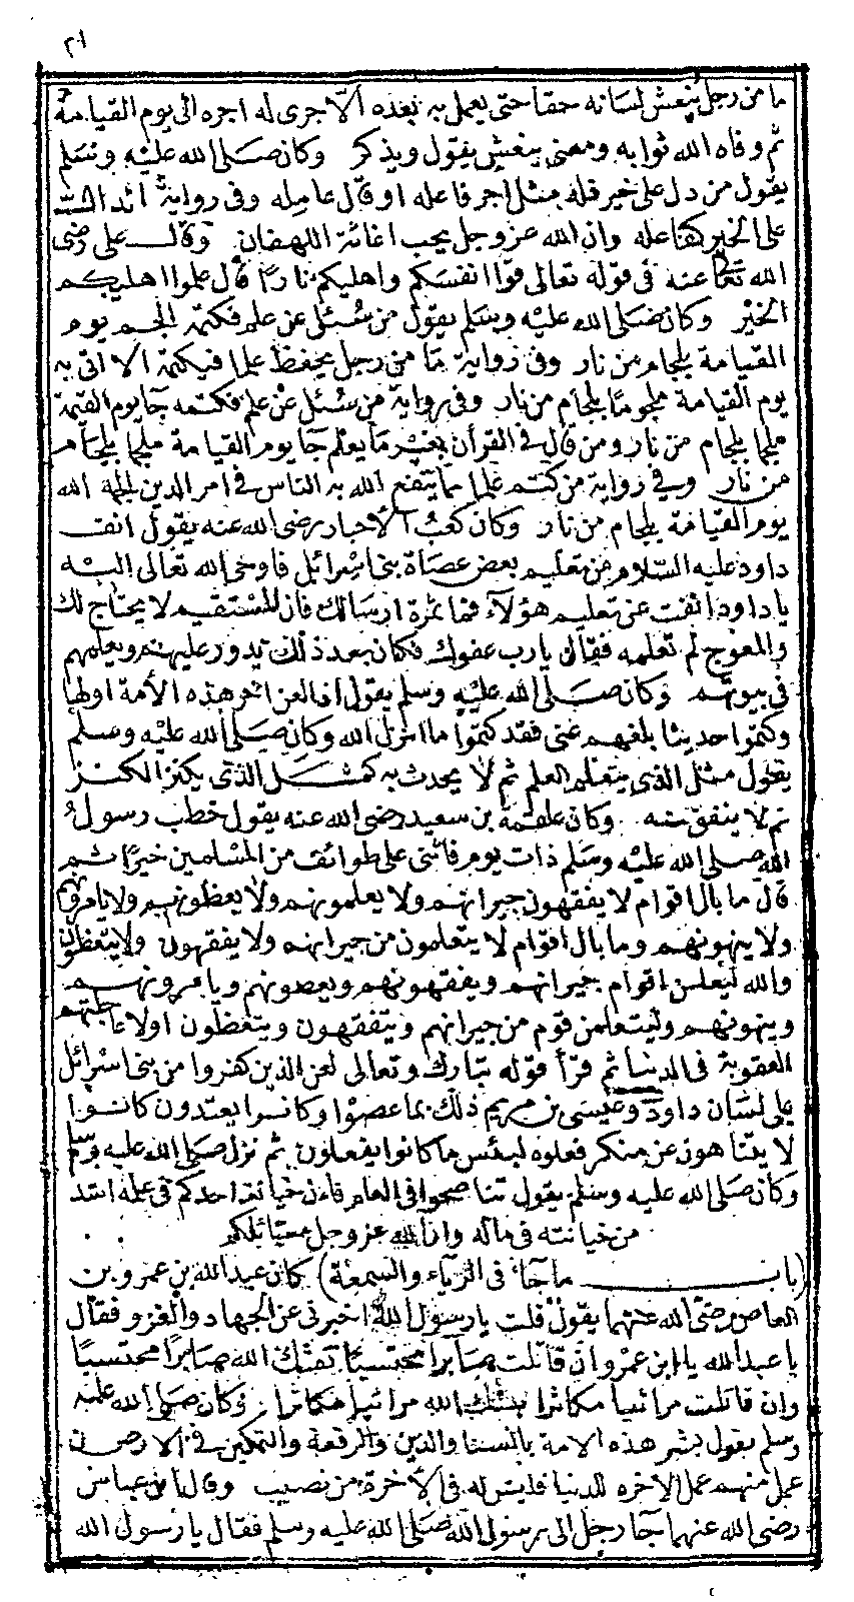 ٢١
ما من رجل ينعش لسانه حقا حتى يعمل به بعده الا جرى له اجره الى يوم القيامة
ثم وفاه الله ثوابه ومعنى ينعش يقول ويذكر وكان صلى الله عليه وسلم
يقول من دل على خير فله مثل اجر فاعله او قال عامله وفى رواية الدال
على الخير كفاعله وان الله عز وجل يحب اغاثة اللهفان وقال على رضى
الله تعالى عنه فى قوله تعالى قوا انفسكم واهليكم نارا قال علموا اهليكم
الخير وكان صلى الله عليه وسلم يقول من سئل عن علم فكتمه الجم يوم
القيامة بلجام من نار وفى رواية ما من رجل يحفظ علما فيكتمه الا اتى به
يوم القيامة ملجوما بلجام من نار وفى رواية من سئل عن علم فكتمه جا يوم القيمة
ملجما بلجام من نار ومن قال فى القرآن بغير ما يعلم جا يوم القيامة ملجما بلجام
من نار وفي رواية من كتم علما مما ينفع الله به الناس فى امر الدين الجمه الله
يوم القيامة بلجام من نار وكان كعب الاحبار رضى الله عنه يقول انف
داود عليه السلام من تعليم بعض عصاة بنى اسرائيل فاوحى الله تعالى اليه
يا داود انفت عن تعليم هؤلاء فما ثمرة ارسالك فان المستقيم لا يحتاج لك
والمعوج لم تعلمه فقال يارب عفوك فكان بعد ذلك يدور عليهم ويعلمهم
فى بيوتهم وكان صلى الله عليه وسلم يقول اذا لعن اخر هذه الأمة اولها
وكتموا حديثا بلغهم عنى فقد كتموا ما انزل الله وكان صلى الله عليه وسلم
يقول مثل الذى يتعلم العلم ثم لا يحدث به كمثل الذى يكنز الكنز
ثم لا ينفق منه وكان علقمة بن سعيد رضى الله عنه يقول خطب رسول
الله صلى الله عليه وسلم ذات يوم فاثنى على طوائف من المسلمين خيرا ثم
قال ما بال اقوام لا يفقهون جيرانهم ولا يعلمونهم ولا يعظونهم ولا يامرونهم
ولا ينهونهم وما بال اقوام لا يتعلمون من جيرانهم ولا يفقهون ولا يتعظون
والله ليعلمن اقوام جيرانهم ويفقهونهم ويعضونهم ويامرونهم
وينهونهم وليتعلمن قوم من جيرانهم ويتفقهون ويتعظون اولاعاجلتهم
العقوبة فى الدنيا ثم قرأ قوله تبارك وتعالى لعن الذين كفروا من بنى اسرائل
على لسان داود وعيسى بن مريم ذلك بما عصوا وكانوا يعتدون كانوا
لا يتناهون عن منكر فعلوه لبئس ما كانوا يفعلون ثم نزل صلى الله عليه وسلم
وكان صلى الله عليه وسلم يقول تناصحوا فى العلم فان خيانة احدكم فى علمه اشد
من خيانته فى ماله وان الله عز وجل مسائلكم
(باب ما جاء فى الرياء والسمعة) كان عبد الله بن عمرو بن
العاص رضى الله عنهما يقول قلت يا رسول الله اخبرنى عن الجهاد والغزو فقال
يا عبد الله يا ابن عمرو ان قاتلت صابرا محتسبا بعثك الله صابرا محتسبا
وان قاتلت مرائيا مكاثرا بعثك الله مرائيا مكاثرا وكان صلى الله عليه
وسلم يقول بشر هذه الامة بالسنا والدين والرفعة والتمكين فى الارض فمن
عمل منهم عمل الاخره للدنيا فليس له فى الآخرة من نصيب وقال ابن عباس
رضى الله عنهما جا رجل الى رسول الله صلى الله عليه وسلم فقال يا رسول الله